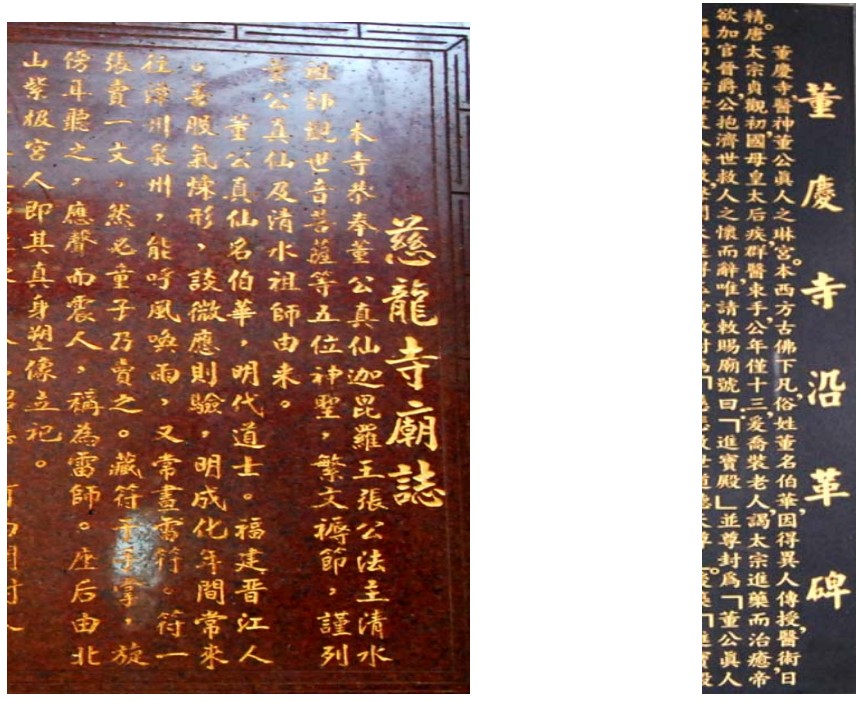 慈龍寺廟誌
本寺恭奉董公真仙迦毘羅王張公法主清水
祖師觀世音菩薩等五位神聖，繁文褥節，謹列
董公真仙及清水祖師由来。
董公真仙名伯華，明代道士。福建晋江人
。善服氣煉形，談微應則驗，明成化年間常來
往漳州泉州，能呼風喚雨，又常畫雷符。符一
張賣一文。然必童子乃賣之。藏符于手掌，旋
傍耳聽之，應聲而震人，稱為雷師。座后由北
山紫极宫人即其真身塑像立祀。
董慶寺沿革碑
董慶寺醫神董公眞人之琳宮。本西方古佛下凡，俗姓董名伯華，因得異人傳授，醫術日
精。唐太宗貞觀初國母皇太后疾，群醫束手，公年僅十三，爰喬裝老人，謁太宗進藥而治癒，帝
欲加官晉爵，公抱濟世救人之懷而辭，唯請敕賜廟號曰「進寳殿」並尊封爲「董公眞人